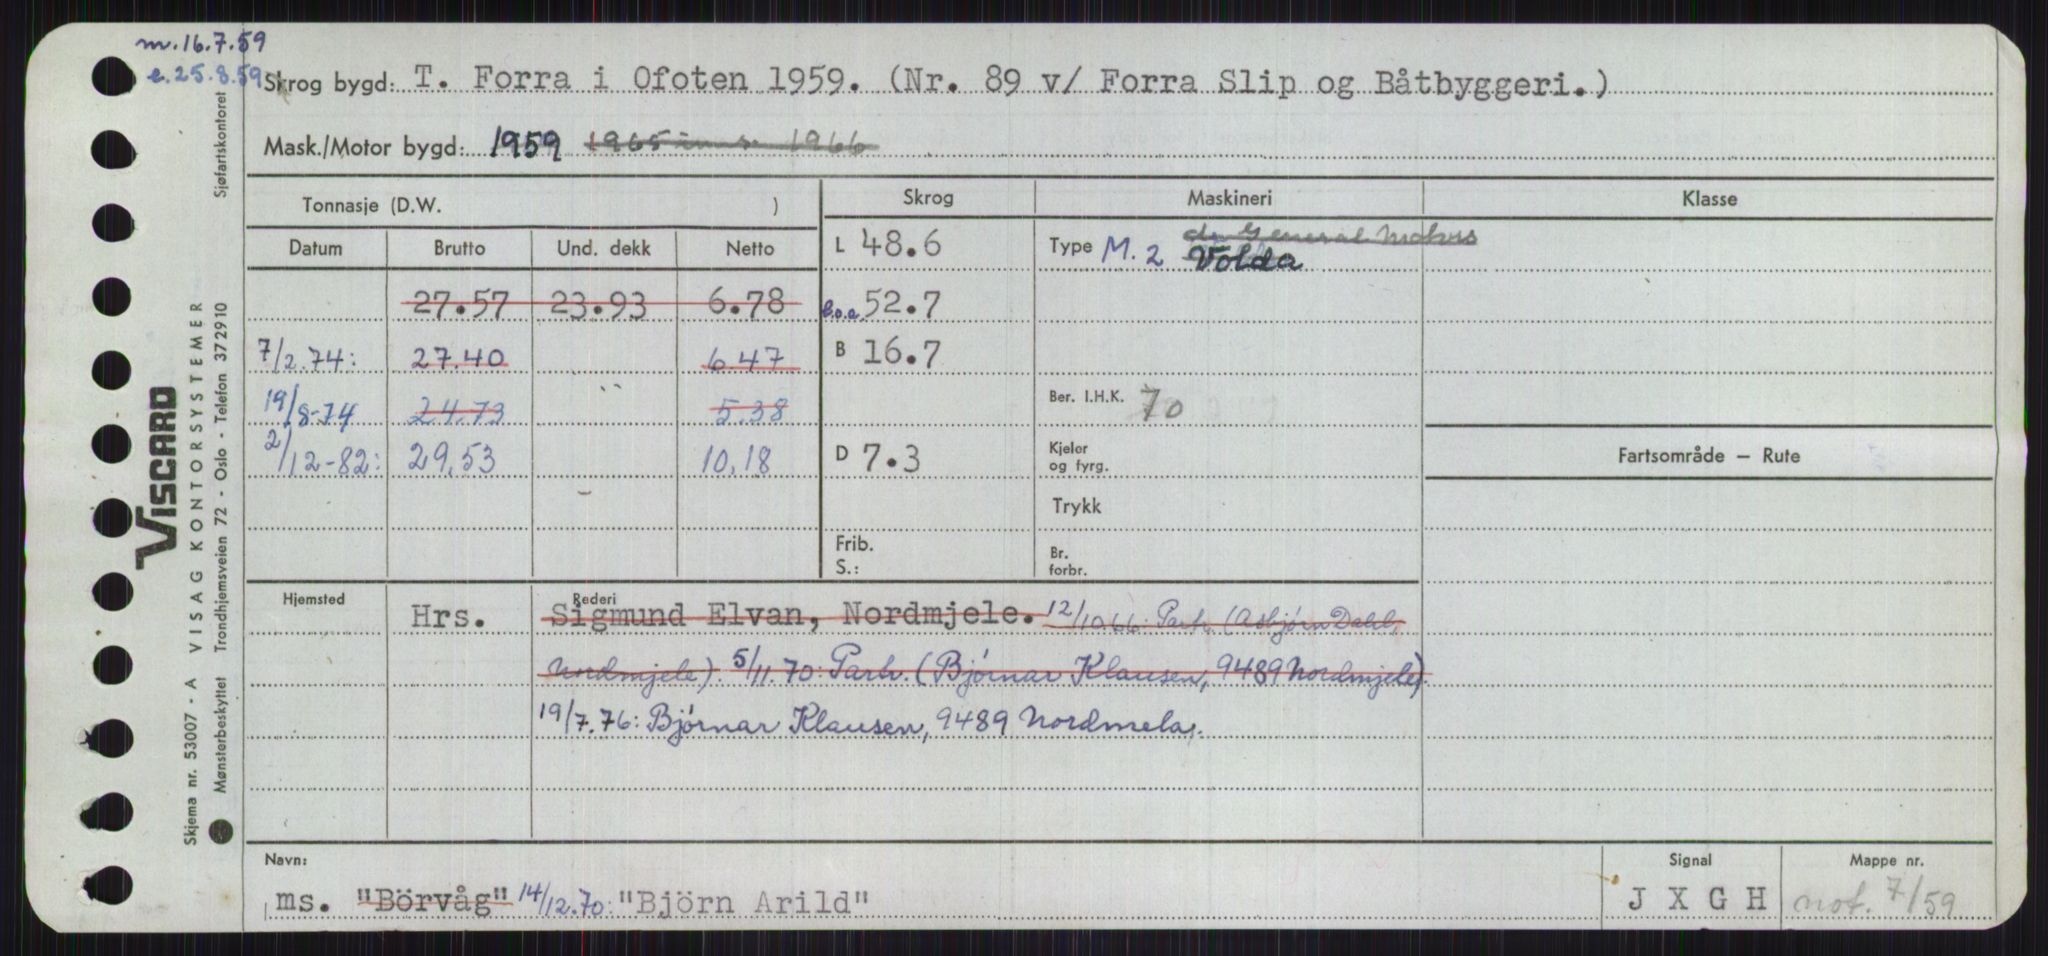 m. 16.7.59
e. 25.8.59
Skrog bygd: T. Forra i Ofoten 1959. (Nr. 89 v/ Forra Slip og Båtbyggeri.)
Mask./Motor bygd: 1959 1965 inns. 1966
Tonnasje (D.W. ) Skrog Maskineri Klasse
Datum Brutto Und. dekk Netto L 48.6 Type M. 2 General Motors
Volda
27.57 23.93 6.78 l.o.a. 52.7
7/2.74: 27.40 6.47 B 16.7
19/8-74 24.73 5.38 Ber. I.H.K. 70
2/12-82: 29,53 10,18 D 7.3 Kjeler og fyrg. Fartsområde — Rute
Trykk
Frib. Br.
S.: forbr.
Hjemsted Rederi
Hrs. Sigmund Elvan, Nordmjele. 12/10.66: Partr. (Asbjørn Dahl,
Nordmjele). 5/11.70: Partr. (Bjórnar Klausen, 9489 Nordmjele).
19/7.76: Bjórnar Klausen, 9489 Nordmela.
Navn: Signal Mappe nr.
ms. "Börvåg" 14/12.70: "Björn Arild" J X G H not. 7/59
VISCARD
Skjema nr. 53007 - A VISAG KONTORSYSTEMER
Mønsterbeskyttet Trondhjemsveien 72 - Oslo - Telefon 372910 Sjøfartskontoret